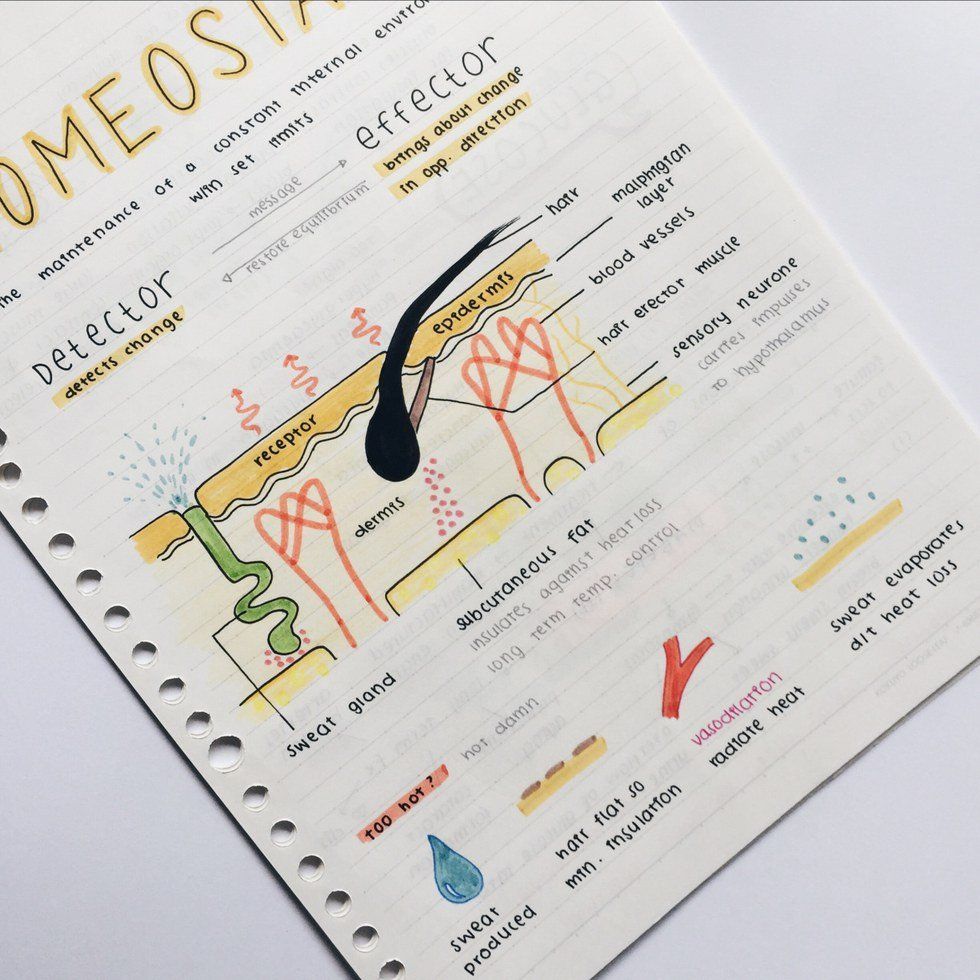 OMEOSTA
the maintenance of a constant internal enviro
w/in set limits
message
restore equilibrium
effector
brings about change
in opp. direction
Detector
detects change
hair
malphigian
layer
blood vessels
hair erector muscle
sensory neurone
carries impulses
to hypothalamus
epidermis
receptor
dermis
subcutaneous fat
insulates against heat loss
long term temp. control
sweat gland
too hot?
hot damn
sweat
produced
hair flat so
min. insulation
vasodilation
radiate heat
sweat evaporates
d/t heat loss